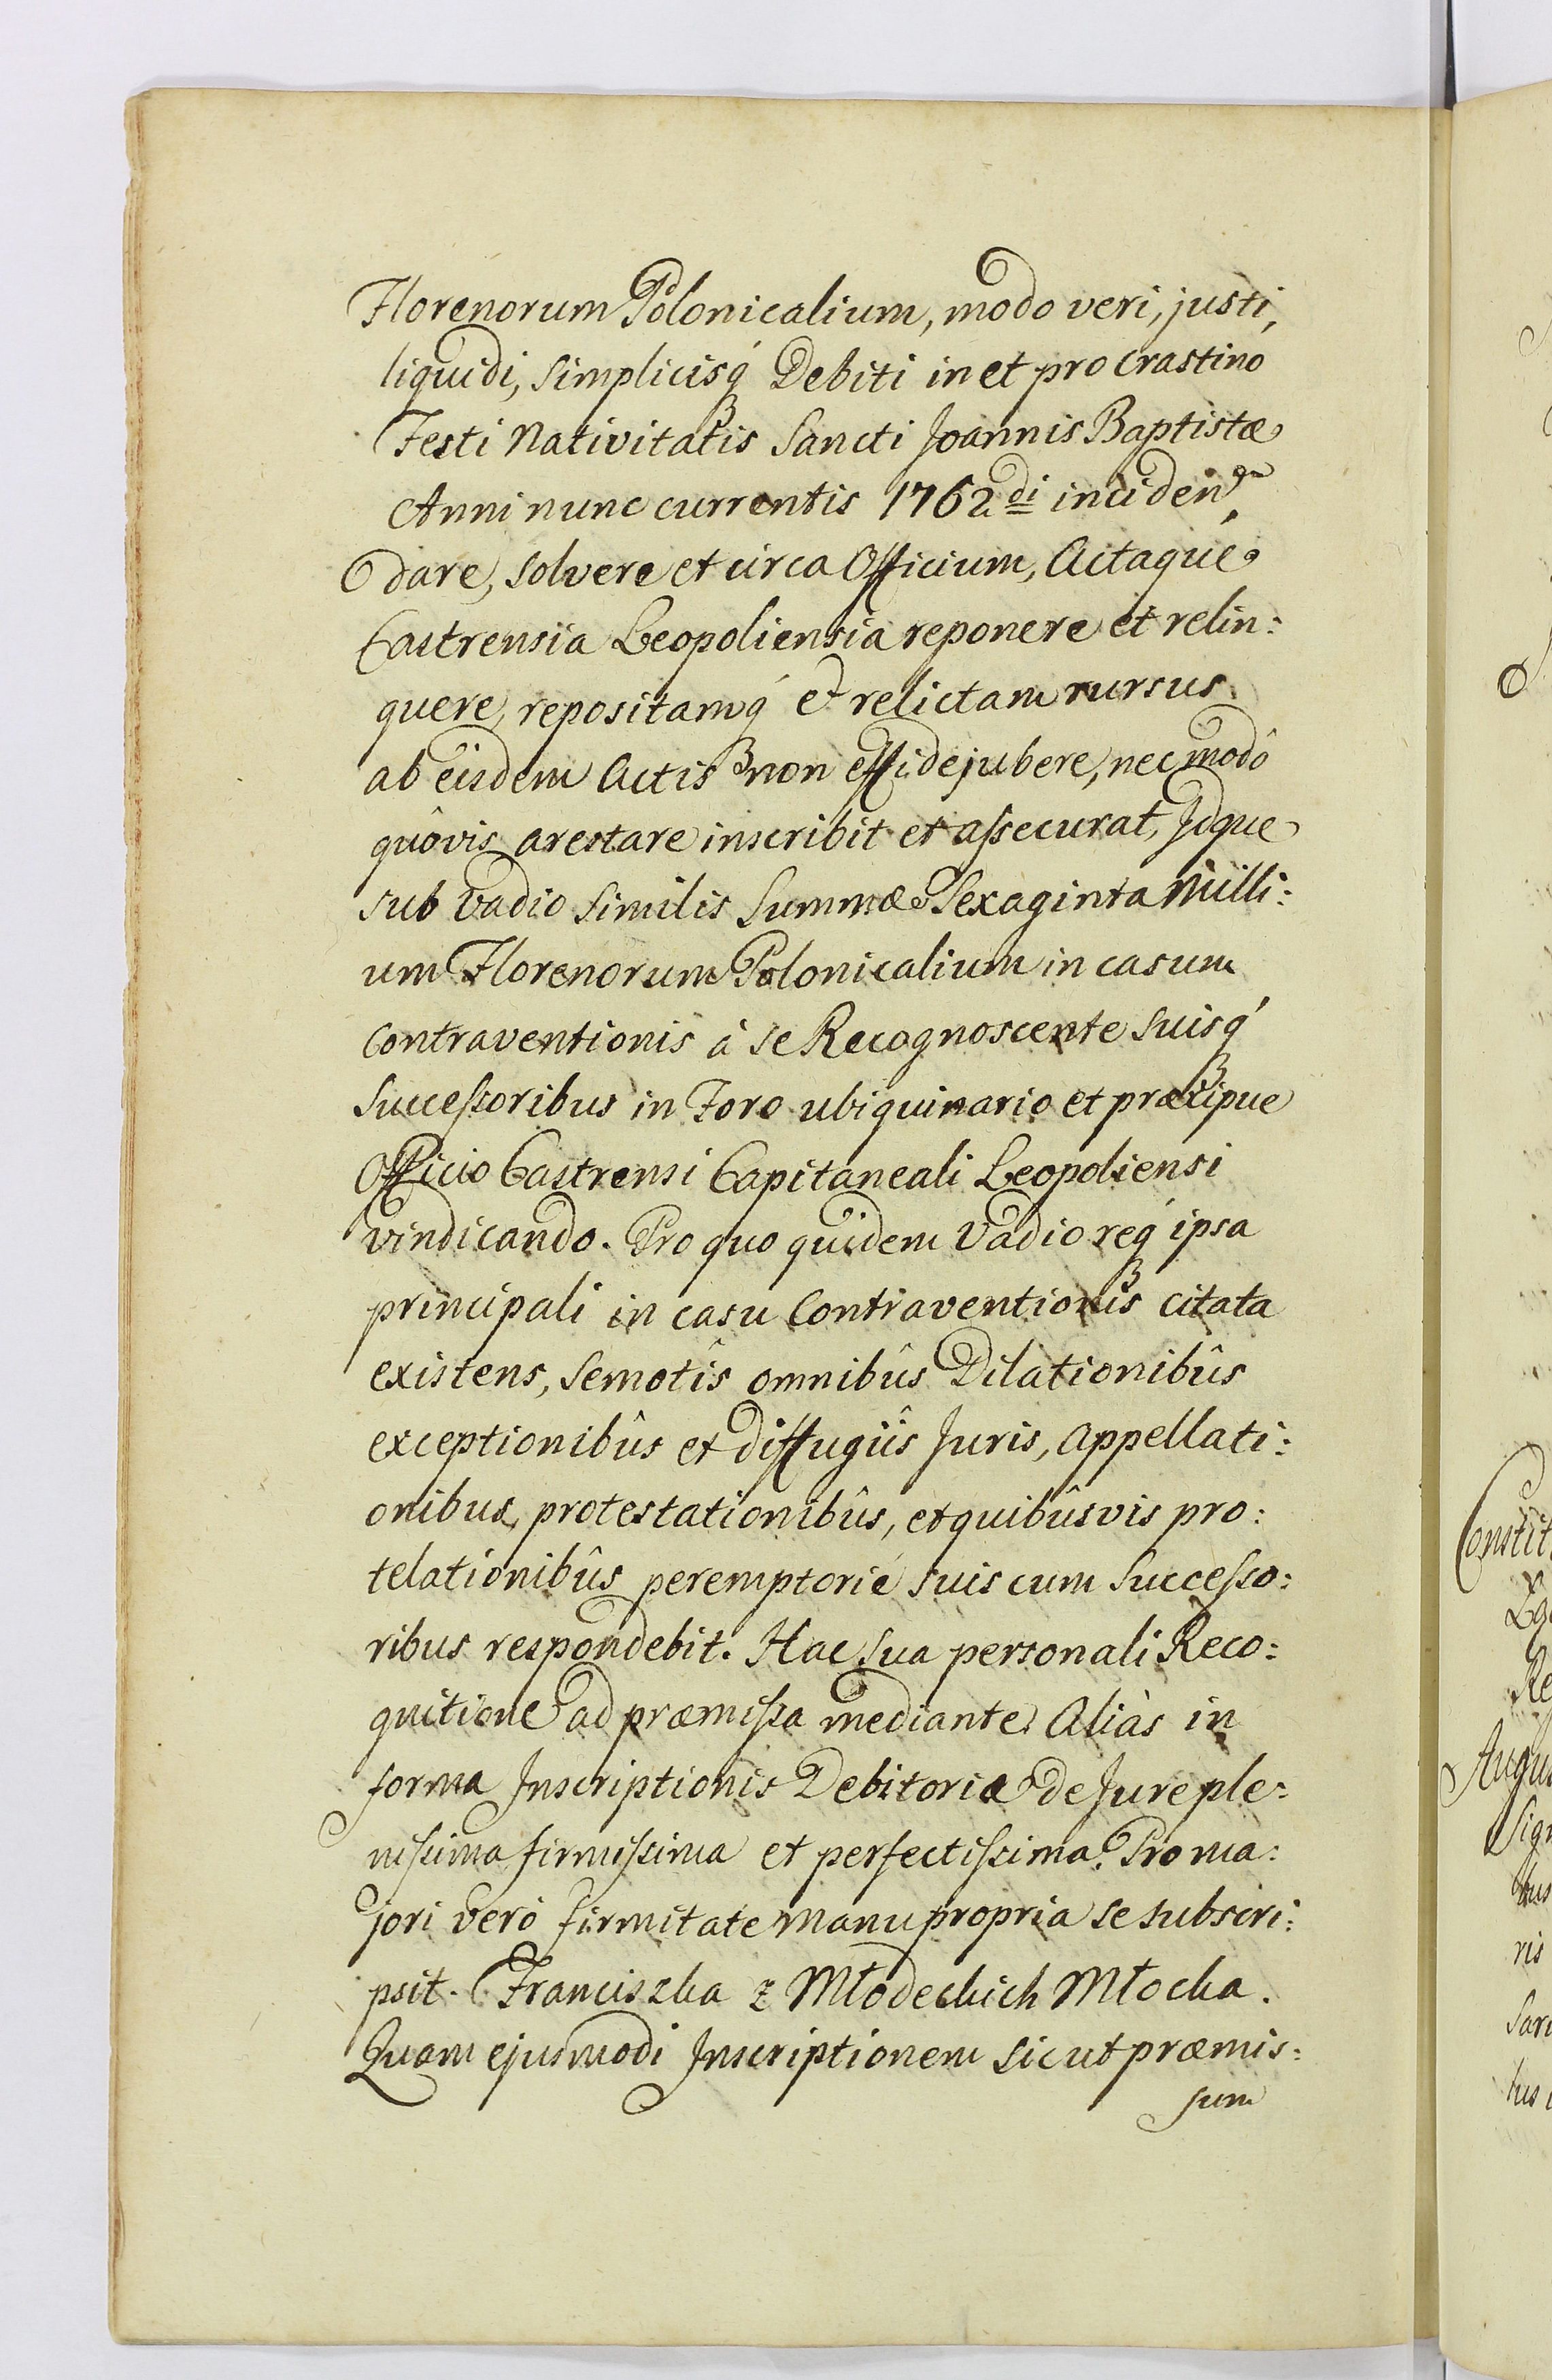 Florenorum Polonicalium, modo veri, justi,
liquidi, simplicisq́ Debiti in et pro crastino
Festi Nativitatis Sancti Joannis Baptistæ
Anni nunc currentis 1762di inciden.
dare, solvere et circa Officium, Actaque
Castrensia Leopoliensia reponere et relin:
quere, repositamq́ et relictam rursus
ab eisdem Actis non effidejubere, nec modô
quôvis arestare inscribit et assecurat, Idque
sub vadio similis Summæ Sexaginta Milli:
um Florenorum Polonicalium in casum
contraventionis à se Recognoscente suisq́
Successoribus in Foro ubiquinario et præcipue
Officio Castrensi Capitaneali Leopoliensi
vindicando. Pro quo quidem vadio req́ ipsa
principali in casu Contraventionis citata
existens, Semotîs omnibûs Dilationibûs
exceptionibûs et diffugiis Juris, appellati:
onibus, protestationibûs, et quibûsvis pro:
telationibûs peremptorié suis cum Successo:
ribus respondebit. Hac sua personali Reco:
gnitione ad præmissa mediante. Aliàs in
forma Inscriptionis Debitoriæ de Jure ple:
nissima firmissima et perfectissima. Pro ma:
jori verò firmitate manu propria se subscri:
psit. Franciszka z Młodeckich Młocka.
Quam ejusmodi Inscriptionem sicut præmis:
sum
Constit
Augu